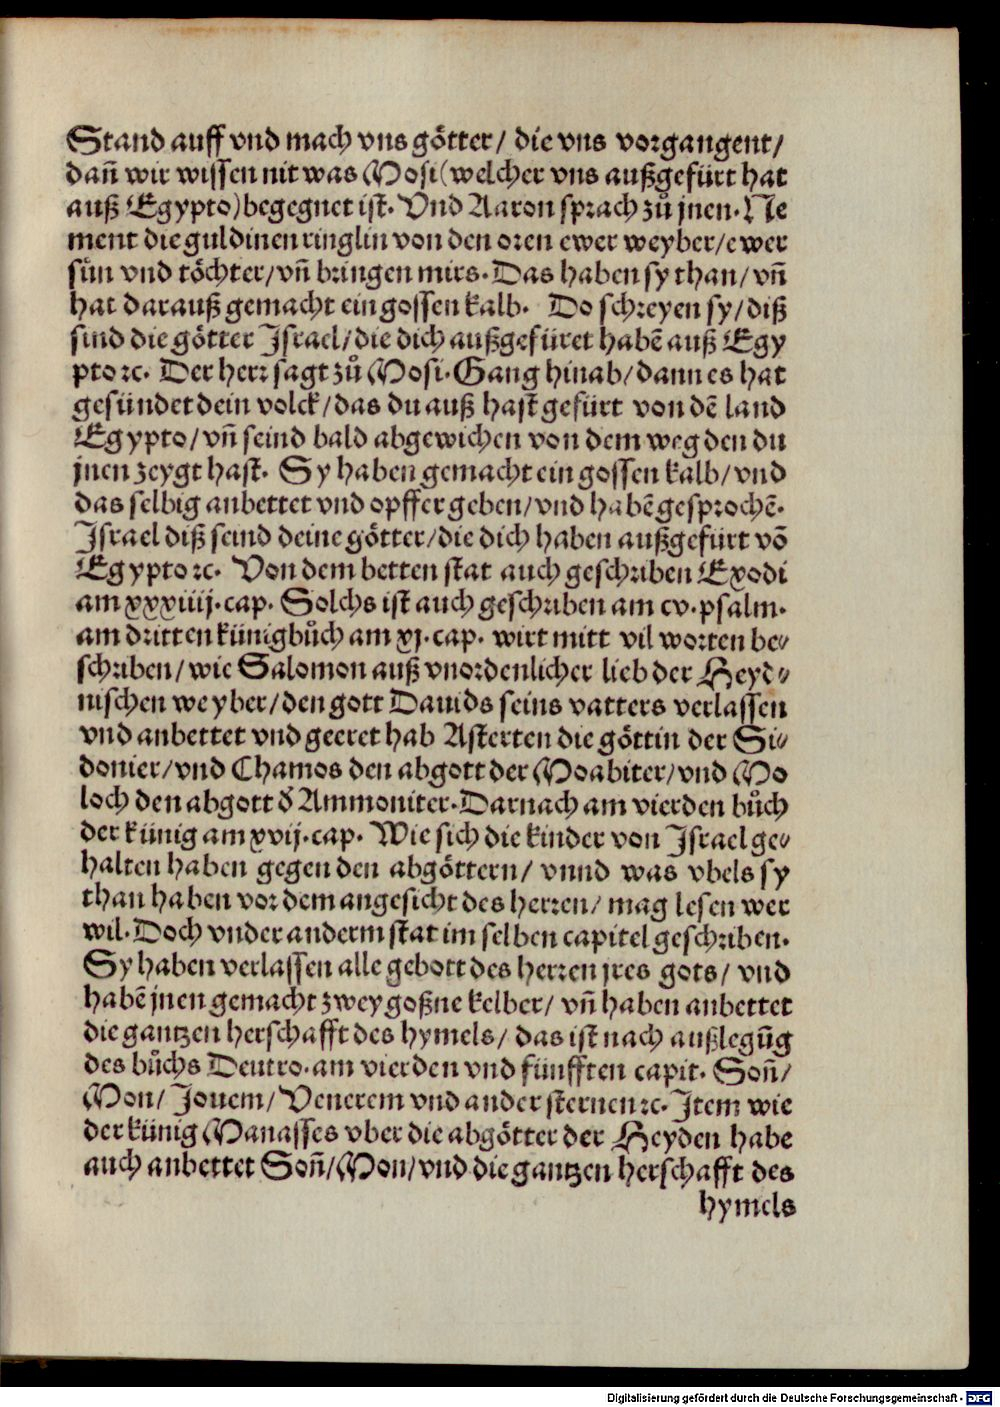 Stand auff vnd mach vns götter/ die vns vorgangent/
dañ wir wissen nit was Mosi (welcher vns außgefürt hat
auß Egypto) begegnet ist. Vnd Aaron sprach zů jnen. Ne
ment die guldinen ringlin von den oren ewer weyber/ ewer
sün vnd töchter/ vñ bringen mirs. Das haben sy than/ vñ
hat darauß gemacht ein gossen kalb. Do schreyen sy/ diß
sind die götter Israel/ die dich außgefüret habẽ auß Egy
pto ꝛc. Der herr sagt zů Mosi. Gang hinab/ dann es hat
gesündet dein volck/ das du auß hast gefürt von dẽ land
Egypto/ vñ seind bald abgewichen von dem weg den du
jnen zeygt hast. Sy haben gemacht ein gossen kalb/ vnd
das selbig anbettet vnd opffer geben/ vnd habẽ gesprochẽ.
Israel diß seind deine götter/ die dich haben außgefürt võ
Egypto ꝛc. Von dem betten stat auch geschriben Exodi
am xxxiiij. cap. Solchs ist auch geschriben am cv. psalm.
am dritten künigbůch am xj. cap. wirt mitt vil worten be⸗
schriben/ wie Salomon auß vnordenlicher lieb der Heyd⸗
nischen weyber/ den gott Dauids seins vatters verlassen
vnd anbettet vnd geeret hab Asterten die göttin der Si⸗
donier/ vnd Chamos den abgott der Moabiter/ vnd Mo
loch den abgott đ Ammoniter. Darnach am vierden bůch
der künig am xvij. cap. Wie sich die kinder von Israel ge⸗
halten haben gegen den abgöttern/ vnnd was vbels sy
than haben vor dem angesicht des herren/ mag lesen wer
wil. Doch vnder anderm stat im selben capitel geschriben.
Sy haben verlassen alle gebott des herren jres gots/ vnd
habẽ jnen gemacht zwey goßne kelber/ vñ haben anbettet
die gantzen herschafft des hymels/ das ist nach außlegũg
des bůchs Deutro. am vierden vnd fünfften capit. Soñ/
Mon/ Jouem/ Venerem vnd ander sternen ꝛc. Item wie
der künig Manasses vber die abgötter der Heyden habe
auch anbettet Soñ/ Mon/ vnd die gantzen herschafft des
hymels
Digitalisierung gefördert durch die Deutsche Forschungsgemeinschaft - DFG